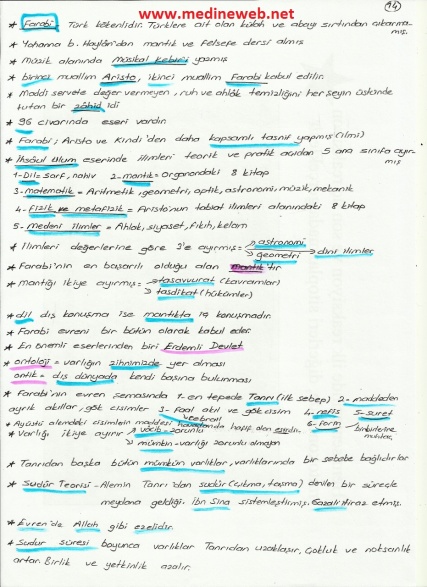 www.medineweb.net
* Farabi - Türk kökenlidir. Türklere ait olan külah ve abayı sırtından çıkarma-
mış.
* Yohanna b. Haylan'dan mantık ve felsefe dersi almış
* Müzik alanında Musikal kebir'i yazmış
* birinci muallim Aristo, ikinci muallim Farabi kabul edilir.
* Maddi servete değer vermeyen, ruh ve ahlâk temizliğini her şeyin üstünde
tutan bir zâhid idi
* 96 civarında eseri vardır
* Farabi; Aristo ve Kindi'den daha kapsamlı tasnif yapmış (ilmi)
* İhsâul Ulum eserinde ilimleri teorik ve pratik açıdan 5 ana sınıfa ayır-
mış
1-Dil= sarf, nahiv 2-mantık= Organondaki 8 kitap
3-matematik= Aritmetik, geometri, optik, astronomi, müzik, mekanik
4-fizik ve metafizik= Aristo'nun tabiat ilimleri alanındaki 8 kitap
5-Medeni ilimler= Ahlak, siyaset, fıkıh, kelam
* ilimleri değerlerine göre 3'e ayırmış= → astronomi
→ geometri → dini ilimler
* Farabi'nin en başarılı olduğu alan mantık'tır
* mantığı ikiye ayırmış= → tasavvurat (kavramlar)
→ tasdikat (hükümler)
* dil dış konuşma ise mantıkta iç konuşmadır
* Farabi evreni bir bütün olarak kabul eder
* En önemli eserlerinden biri Erdemli Devlet
* ontoloji = varlığın zihnimizde yer alması
antik = dış dünyada kendi başına bulunması
* Farabi'nin evren şemasında 1-en tepede Tanrı (ilk sebep) 2-maddeden
ayrık akıllar, gök cisimler 3-Faal akıl ve gök cisim 4-nefis 5-suret
* Ayüstü alemdeki cisimlerin maddesi havadan hafif olan esirdir. 6-form
* Varlığı ikiye ayırır → vacib-zorunlu
→ mümkin-varlığı zorunlu olmayan
* Tanrıdan başka bütün mümkün varlıklar, varlıklarında bir sebebe bağlıdırlar
* Sudür Teorisi - Alemin Tanrı'dan sudür (çıkma, taşma) denilen bir süreçle
meydana geldiği. İbn Sina sistemleştirmiş. Gazali itiraz etmiş.
* Evren'de Allah gibi ezelidir.
* Sudur süresi boyunca varlıklar Tanrıdan uzaklaşır, çokluk ve noksanlık
artar. Birlik ve yetkinlik azalır.